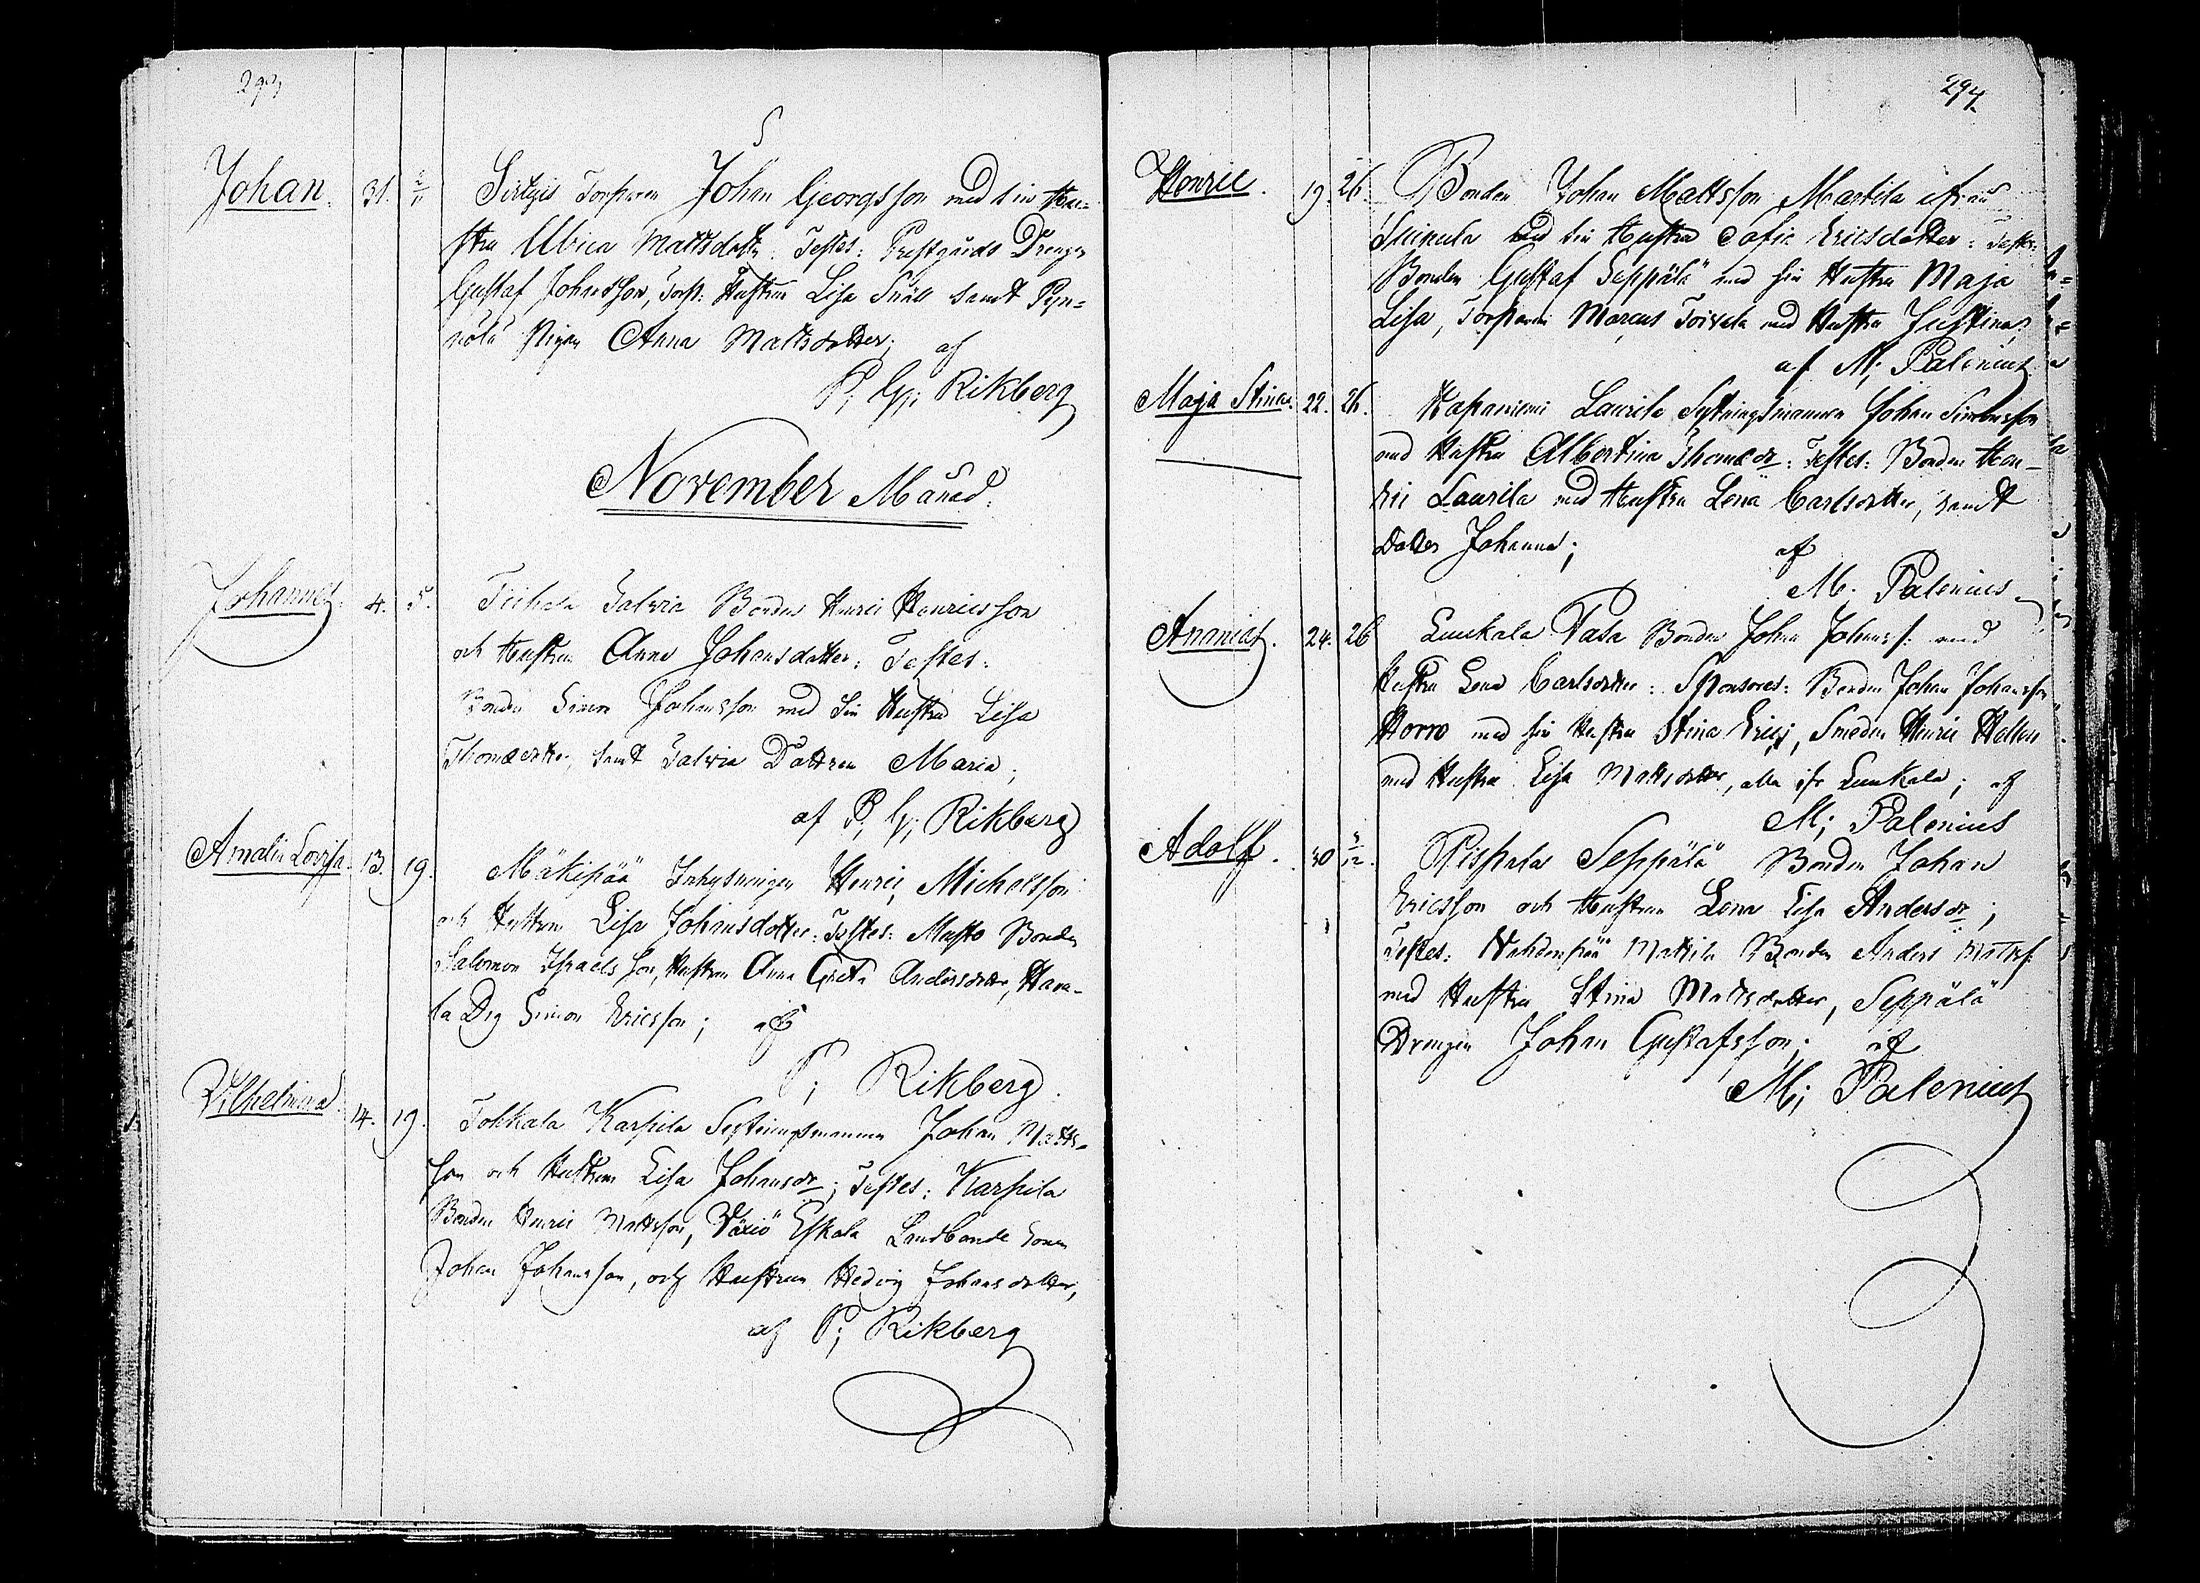 293
Johan. 31. 2/11 Torparen Johan Georgsson med sin Hu=
stru Ulrica Mattsdotter. Testes: Prestgårds Drengen
Gustaf Johansson, Torp: Hustrun Lisa Snäll samt Pyn=
nölä Pigan Anna Mattsdotter; af
P. G; Rikberg
November Månad.
Johannes. 4. 5. Tuhola Talvia Bonden Henric Henricsson
och Hustrun Anna Johansdotter: Testes:
Bonden Simon Johansson med sin Hustru Lisa
Thomædotter, samt Talvia Dottren Maria;
af P; G; Rikberg
Amalia Lovisa. 13. 19. Mäkipää Inhysningen Henric Michelsson
och Hustrun Lisa Johansdotter: Testes: Musto Bonden
Salomon Israelsson, Hustrun Anna Greta Andersdotter, Hava-
la Dg Simon Ericsson; af
P; Rikberg.
Vilhelmina. 14. 19. Tokkala Karpila Sytningsmannen Johan Matts-
son och Hustrun Lisa Johansdr; Testes: Karpila
Bonden Henric Mattsson, Växiö Eskola Landbonde Sonen
Johan Johansson, och Hustrun Hedvig Johansdotter,
af P; Rikberg
294.
Henric. 19. 26. Bonden Johan Mattsson Martila ifrån
med sin Hustru Sofia Ericsdotter: Testes:
Bonden Gustaf Seppälä med sin Hustru Maja
Lisa, Torparen Marcus Toivola med Hustru Justina,
af M; Palenius.
Maja Stina. 22. 26. Hapaniemi Laurila Sytningsmannen Johan Simonsson
med Hustru Albertina Thomædr: Testes: Bonden Hen-
ric Laurila med Hustru Lena Carlsdotter, samt
Dotter Johanna; af
M. Palenius
Ananias. 24. 26 Luukala Pasa Bonden Johan Johanss: med
Hustru Lena Carlsdotter: Sponsores: Bonden Johan Johansson
Horro med sin Hustru Stina Ericsj, Smeden Henric Hellen
med Hustru Lisa Mattsdotter, alla ifr Luukala; af
M; Palenius
Adolf. 30 3/12. Pispala Seppälä Bonden Johan
Ericsson och Hustrun Lena Lisa Andersdr;
Testes: Vahdenpää Mattila Bonden Anders Mattss:
med Hustru Stina Mattsdotter, Seppälä
Drengen Johan Gustafsson; af
M; Palenius